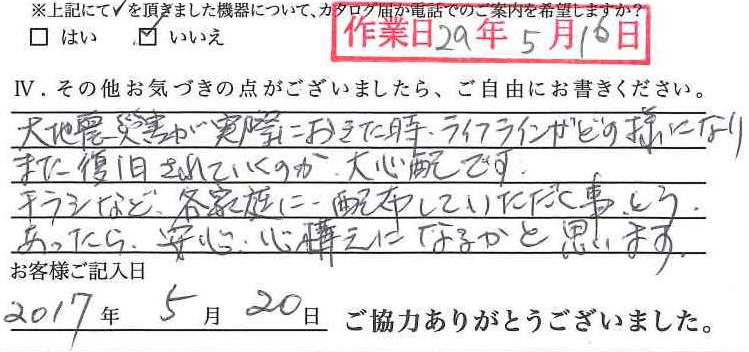 ※上記にて✓を頂きました機器について、カタログ届か電話でのご案内を希望しますか？
□ はい ☑ いいえ
作業日 29年 5月16日
Ⅳ．その他お気づきの点がございましたら、ご自由にお書きください。
大地震災害が実際におきた時、ライフラインがどの様になり
また復旧されていくのか、大心配です。
チラシなど、各家庭に配布していただく事、とう、
あったら、安心、心構えになるかと思います。
お客様ご記入日
2017年 5月 20日 ご協力ありがとうございました。